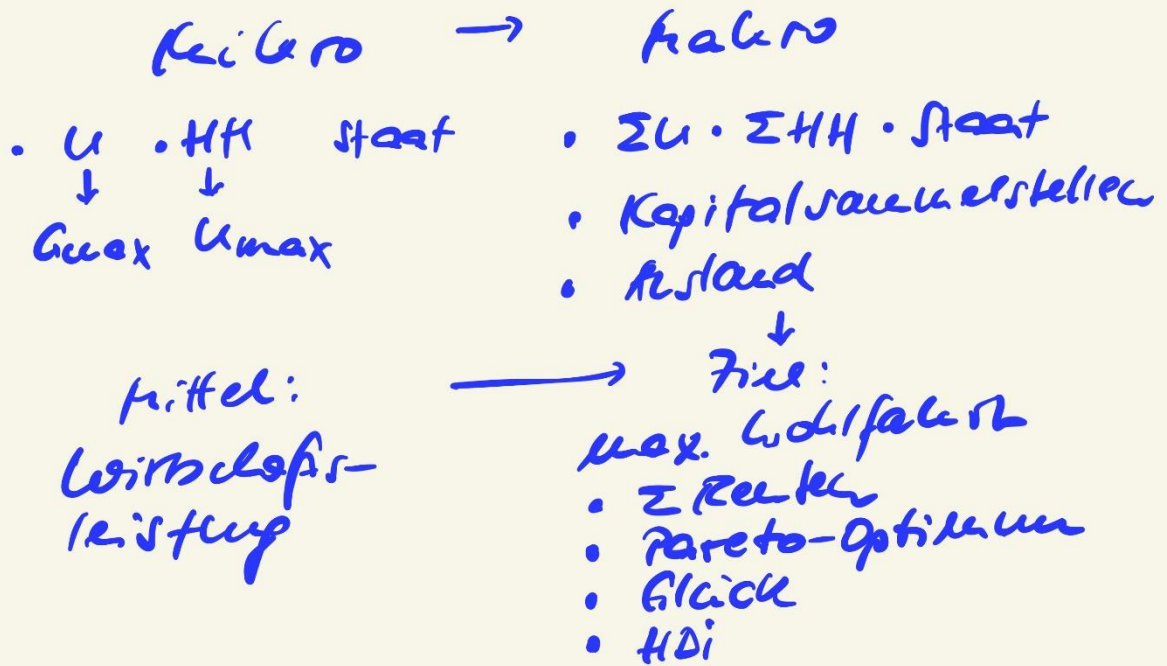 Mikro → Makro
• U • HH Staat
↓ ↓
Gmax Umax
• ΣU • ΣHH • Staat
• Kapitalsammelstellen
• Ausland
↓
Mittel: → Ziel:
Wirtschafts-
leistung
max. Wohlfahrt
• Σ Renten
• Pareto-Optimum
• Glück
• HDi